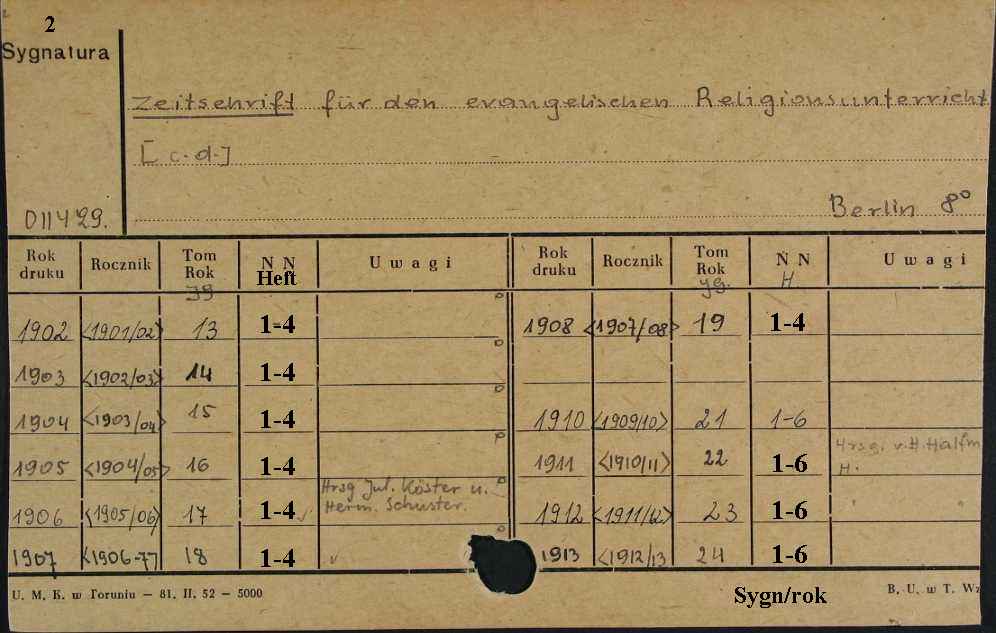 2
Sygnatura
Zeitschrift für den evangelischen Religionsunterricht
[c.d.]
011429.
Berlin 8º
Rok druku Rocznik Tom Rok Jg N N Heft Uwagi Rok druku Rocznik Tom Rok Jg. N N H Uwagi
1902 <1901/02> 13 1-4 1908 <1907/08> 19 1-4
1903 <1902/03> 14 1-4
1904 <1903/04> 15 1-4 1910 <1909/10> 21 1-6
1905 <1904/05> 16 1-4 1911 <1910/11> 22 1-6 Hrsg. v. H. Halfm
H.
Hrsg Jul. Köster u.
1906 <1905/06> 17 1-4 Herm. Schuster. 1912 <1911/12> 23 1-6
1907 <1906-77 18 1-4 1913 <1912/13 24 1-6
U. M. K. w Toruniu – 81. II. 52 – 5000 Sygn/rok B. U. w T. Wz